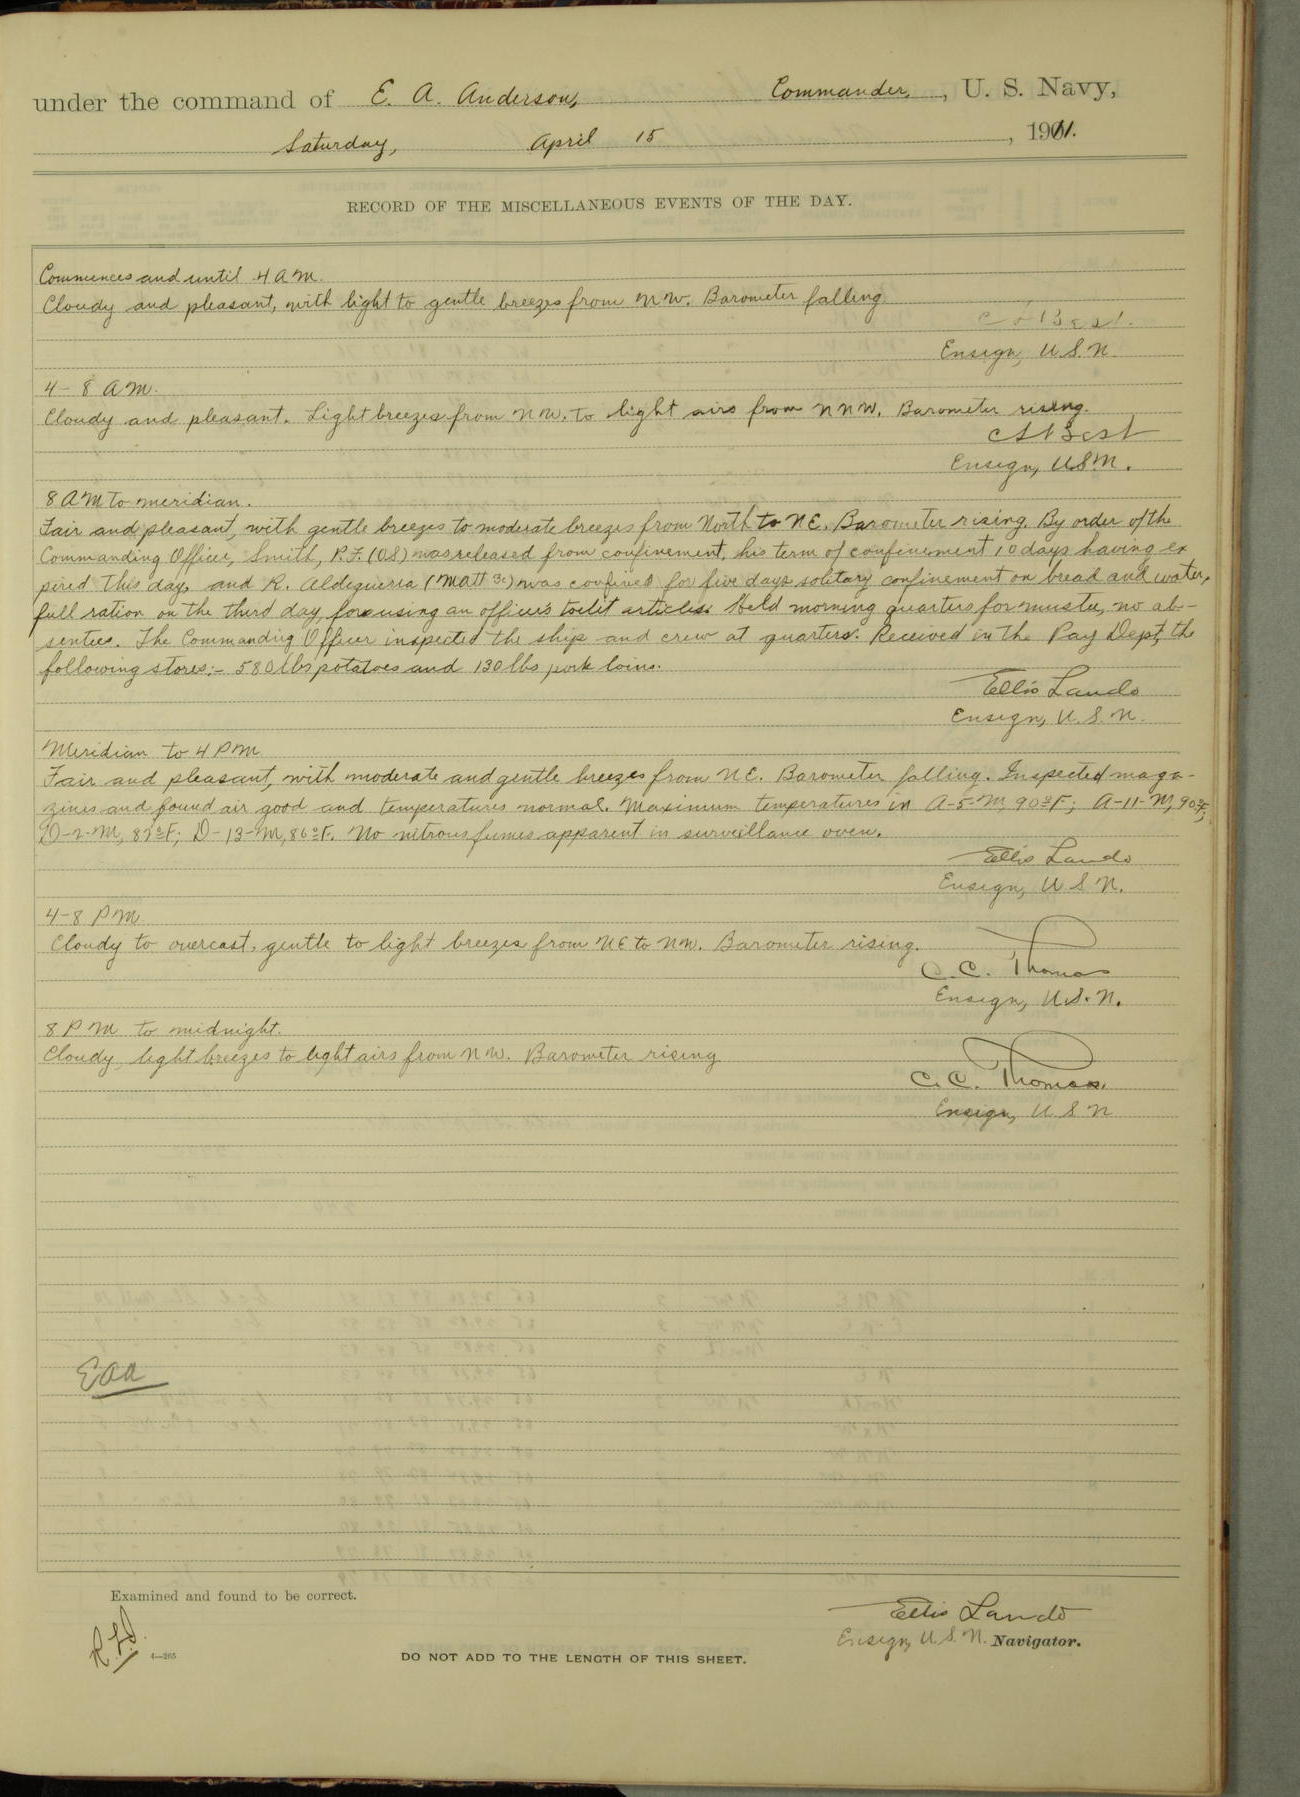 under the command of E. A. Anderson, Commander, , U. S. Navy,
Saturday, April 15 , 1911.
RECORD OF THE MISCELLANEOUS EVENTS OF THE DAY.
Commences and until 4 AM.
Cloudy and pleasant, with light to gentle breezes from NW. Barometer falling
Ensign, U.S.N.
4-8 AM.
Cloudy and pleasant. Light breezes from NW. to light airs from NNW. Barometer rising.
Ensign, USN.
8 AM to meridian.
Fair and pleasant, with gentle breezes to moderate breezes from North to NE. Barometer rising. By order of the
Commanding Officer, Smith, R.F. (OS) was released from confinement, his term of confinement 10 days having ex
pired this day, and R. Aldegueria (Matt 3c) was confined for five days solitary confinement on bread and water,
full ration on the third day, for using an officer's toilit articles. Held morning quarters for muster, no ab-
sentees. The Commanding Officer inspected the ship and crew at quarters. Received in the Pay Dept, the
following stores:- 580 lbs potatoes and 130 lbs pork loins.
Ellis Lando
Ensign, U.S.N.
Meridian to 4 PM
Fair and pleasant, with moderate and gentle breezes from NE. Barometer falling. Inspected maga-
zines and found air good and temperatures normal. Maximum temperatures in A-5-M, 90°F; A-11-M, 90°F;
D-2-M, 87°F; D-13-M, 86°F. No nitrous fumes apparent in surveillance oven.
Ellis Lando
Ensign, U S N.
4-8 PM
Cloudy to overcast, gentle to light breezes from NE to NW. Barometer rising.
C. C. Thomas
Ensign, U.S.N.
8 PM to midnight.
Cloudy, light breezes to light airs from NW. Barometer rising
C. C. Thomas,
Ensign, U S N
EAA
Examined and found to be correct.
Ellis Lando
Ensign, U.S.N. Navigator.
4—265
DO NOT ADD TO THE LENGTH OF THIS SHEET.